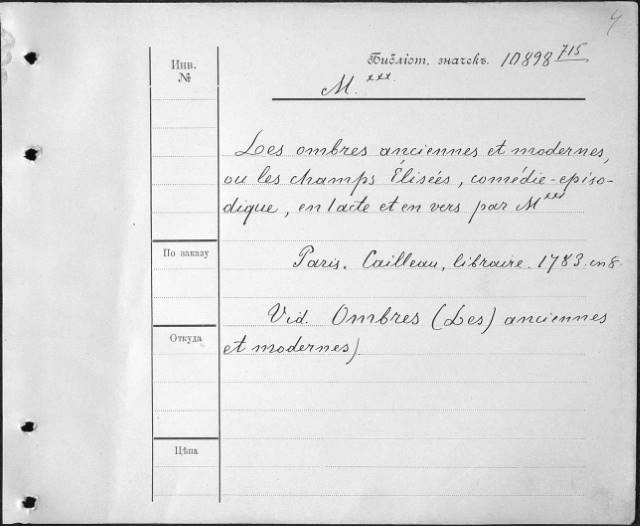 4
Инв.
№
Библіот. значекъ. 10898 715
M.xxx.
Les ombres anciennes et modernes,
ou les champs Élisées, comédie-episo-
dique, en 1 acte et en vers par Mxxx
По заказу
Paris. Cailleau, libraire. 1783. in 8.
Vid. Ombres (Les) anciennes
Откуда
et modernes)
Цѣна